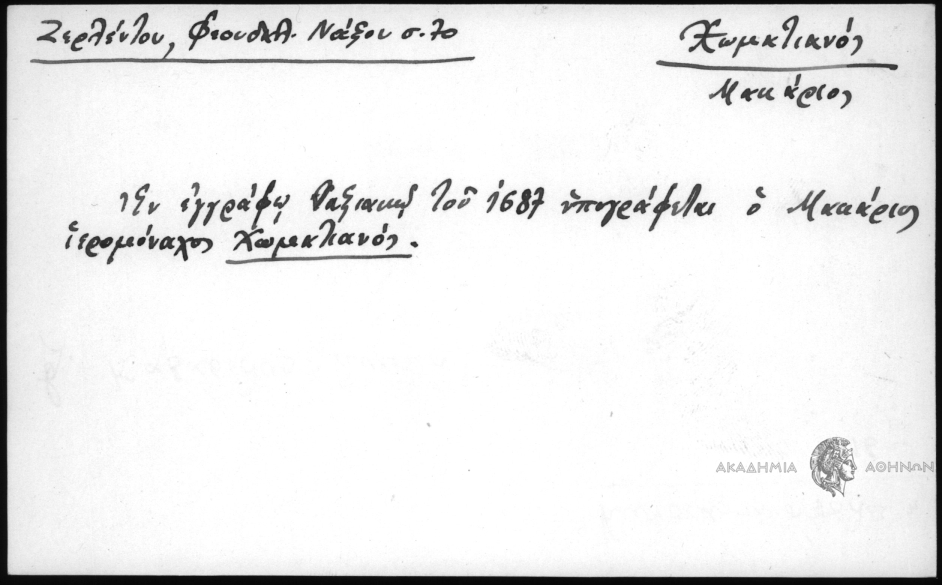 Ζερλέντου, Φεουδαλ. Νάξου σ. 70
Χωματιανός
Μακάριος
Ἐν ἐγγράφῳ Ναξιακῷ τοῦ 1687 ὑπογράφεται ὁ Μακάριος
ἱερομόναχος Χωματιανός.
ΑΚΑΔΗΜΙΑ ΑΘΗΝΩΝ